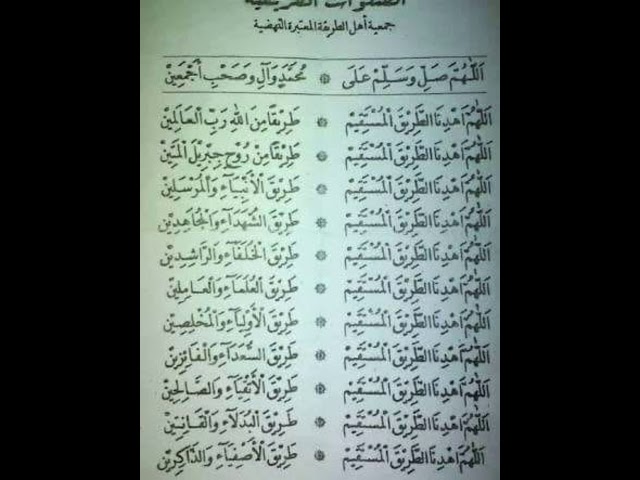 الصلوات الطريقية
جمعية أهل الطريقة المعتبرة النهضية
اَللّٰهُمَّ صَلِّ وَسَلِّمْ عَلَى ۞ مُحَمَّدٍ وَآلِ وَصَحْبِ أَجْمَعِيْنَ
اَللّٰهُمَّ اهْدِنَا الطَّرِيْقَ الْمُسْتَقِيْمَ ۞ طَرِيْقًا مِنَ اللهِ رَبِّ الْعَالَمِيْنَ
اَللّٰهُمَّ اهْدِنَا الطَّرِيْقَ الْمُسْتَقِيْمَ ۞ طَرِيْقًا مِنْ رُوْحِ جِبْرِيْلَ الْمَتِيْنَ
اَللّٰهُمَّ اهْدِنَا الطَّرِيْقَ الْمُسْتَقِيْمَ ۞ طَرِيْقَ الْأَنْبِيَآءِ وَالْمُرْسَلِيْنَ
اَللّٰهُمَّ اهْدِنَا الطَّرِيْقَ الْمُسْتَقِيْمَ ۞ طَرِيْقَ الشُّهَدَآءِ وَالْمُجَاهِدِيْنَ
اَللّٰهُمَّ اهْدِنَا الطَّرِيْقَ الْمُسْتَقِيْمَ ۞ طَرِيْقَ الْخُلَفَآءِ وَالرَّاشِدِيْنَ
اَللّٰهُمَّ اهْدِنَا الطَّرِيْقَ الْمُسْتَقِيْمَ ۞ طَرِيْقَ الْعُلَمَآءِ وَالْعَامِلِيْنَ
اَللّٰهُمَّ اهْدِنَا الطَّرِيْقَ الْمُسْتَقِيْمَ ۞ طَرِيْقَ الْأَوْلِيَآءِ وَالْمُخْلِصِيْنَ
اَللّٰهُمَّ اهْدِنَا الطَّرِيْقَ الْمُسْتَقِيْمَ ۞ طَرِيْقَ السُّعَدَآءِ وَالْفَائِزِيْنَ
اَللّٰهُمَّ اهْدِنَا الطَّرِيْقَ الْمُسْتَقِيْمَ ۞ طَرِيْقَ الْأَتْقِيَآءِ وَالصَّالِحِيْنَ
اَللّٰهُمَّ اهْدِنَا الطَّرِيْقَ الْمُسْتَقِيْمَ ۞ طَرِيْقَ الْبُدَلَآءِ وَالْقَانِتِيْنَ
اَللّٰهُمَّ اهْدِنَا الطَّرِيْقَ الْمُسْتَقِيْمَ ۞ طَرِيْقَ الْأَصْفِيَآءِ وَالذَّاكِرِيْنَ